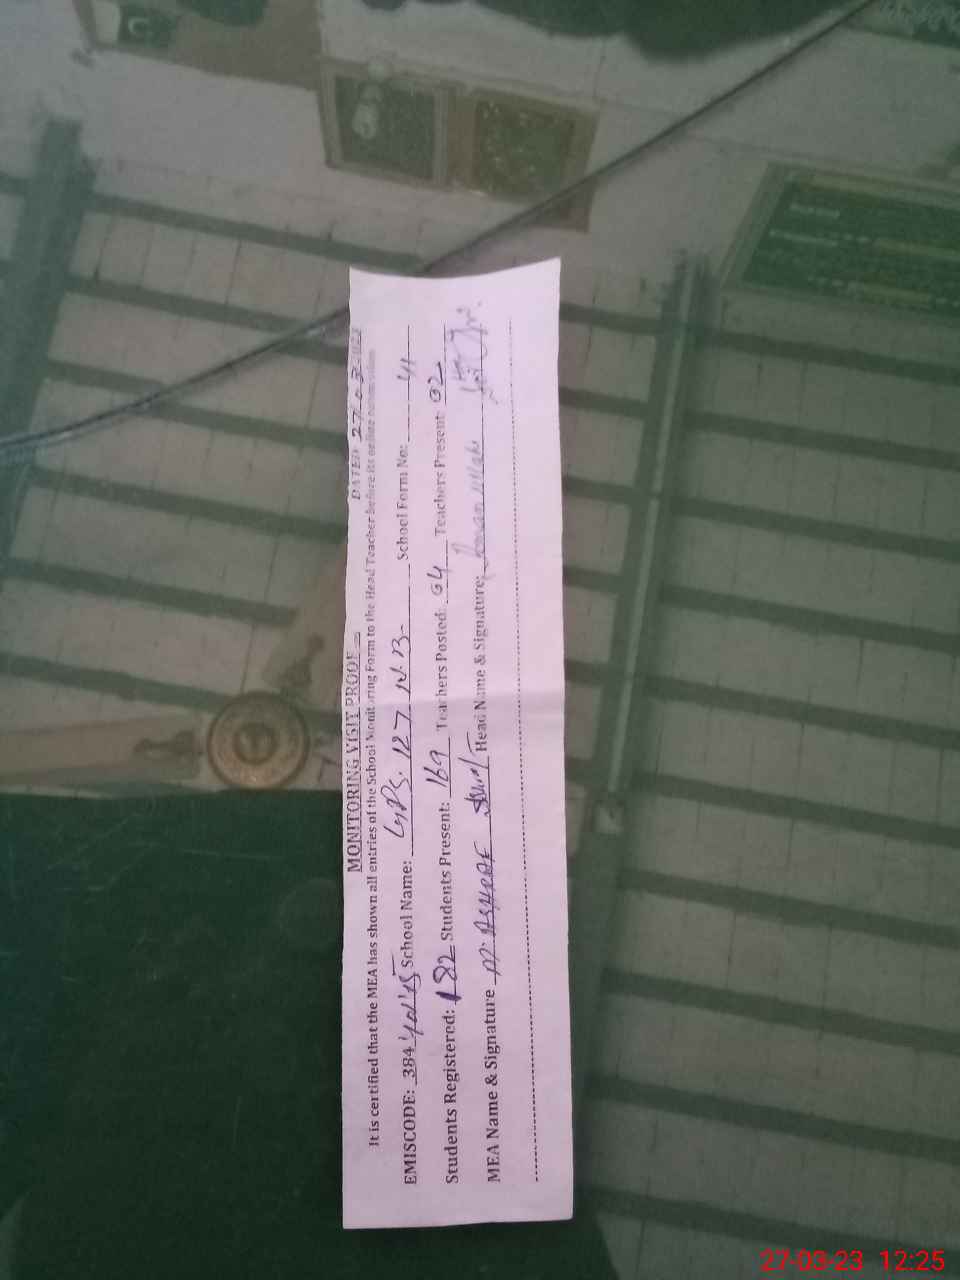 MONITORING VISIT PROOF
DATED 27-03-2023
It is certified that the MEA has shown all entries of the School Monitoring Form to the Head Teacher before its online submission
EMISCODE: 384 School Name: GPS. 127 N.B. School Form No: 41
Students Registered: 182 Students Present: 169 Teachers Posted: 04 Teachers Present: 02
MEA Name & Signature M. ASHRAF Head Name & Signature:
27-03-23 12:25